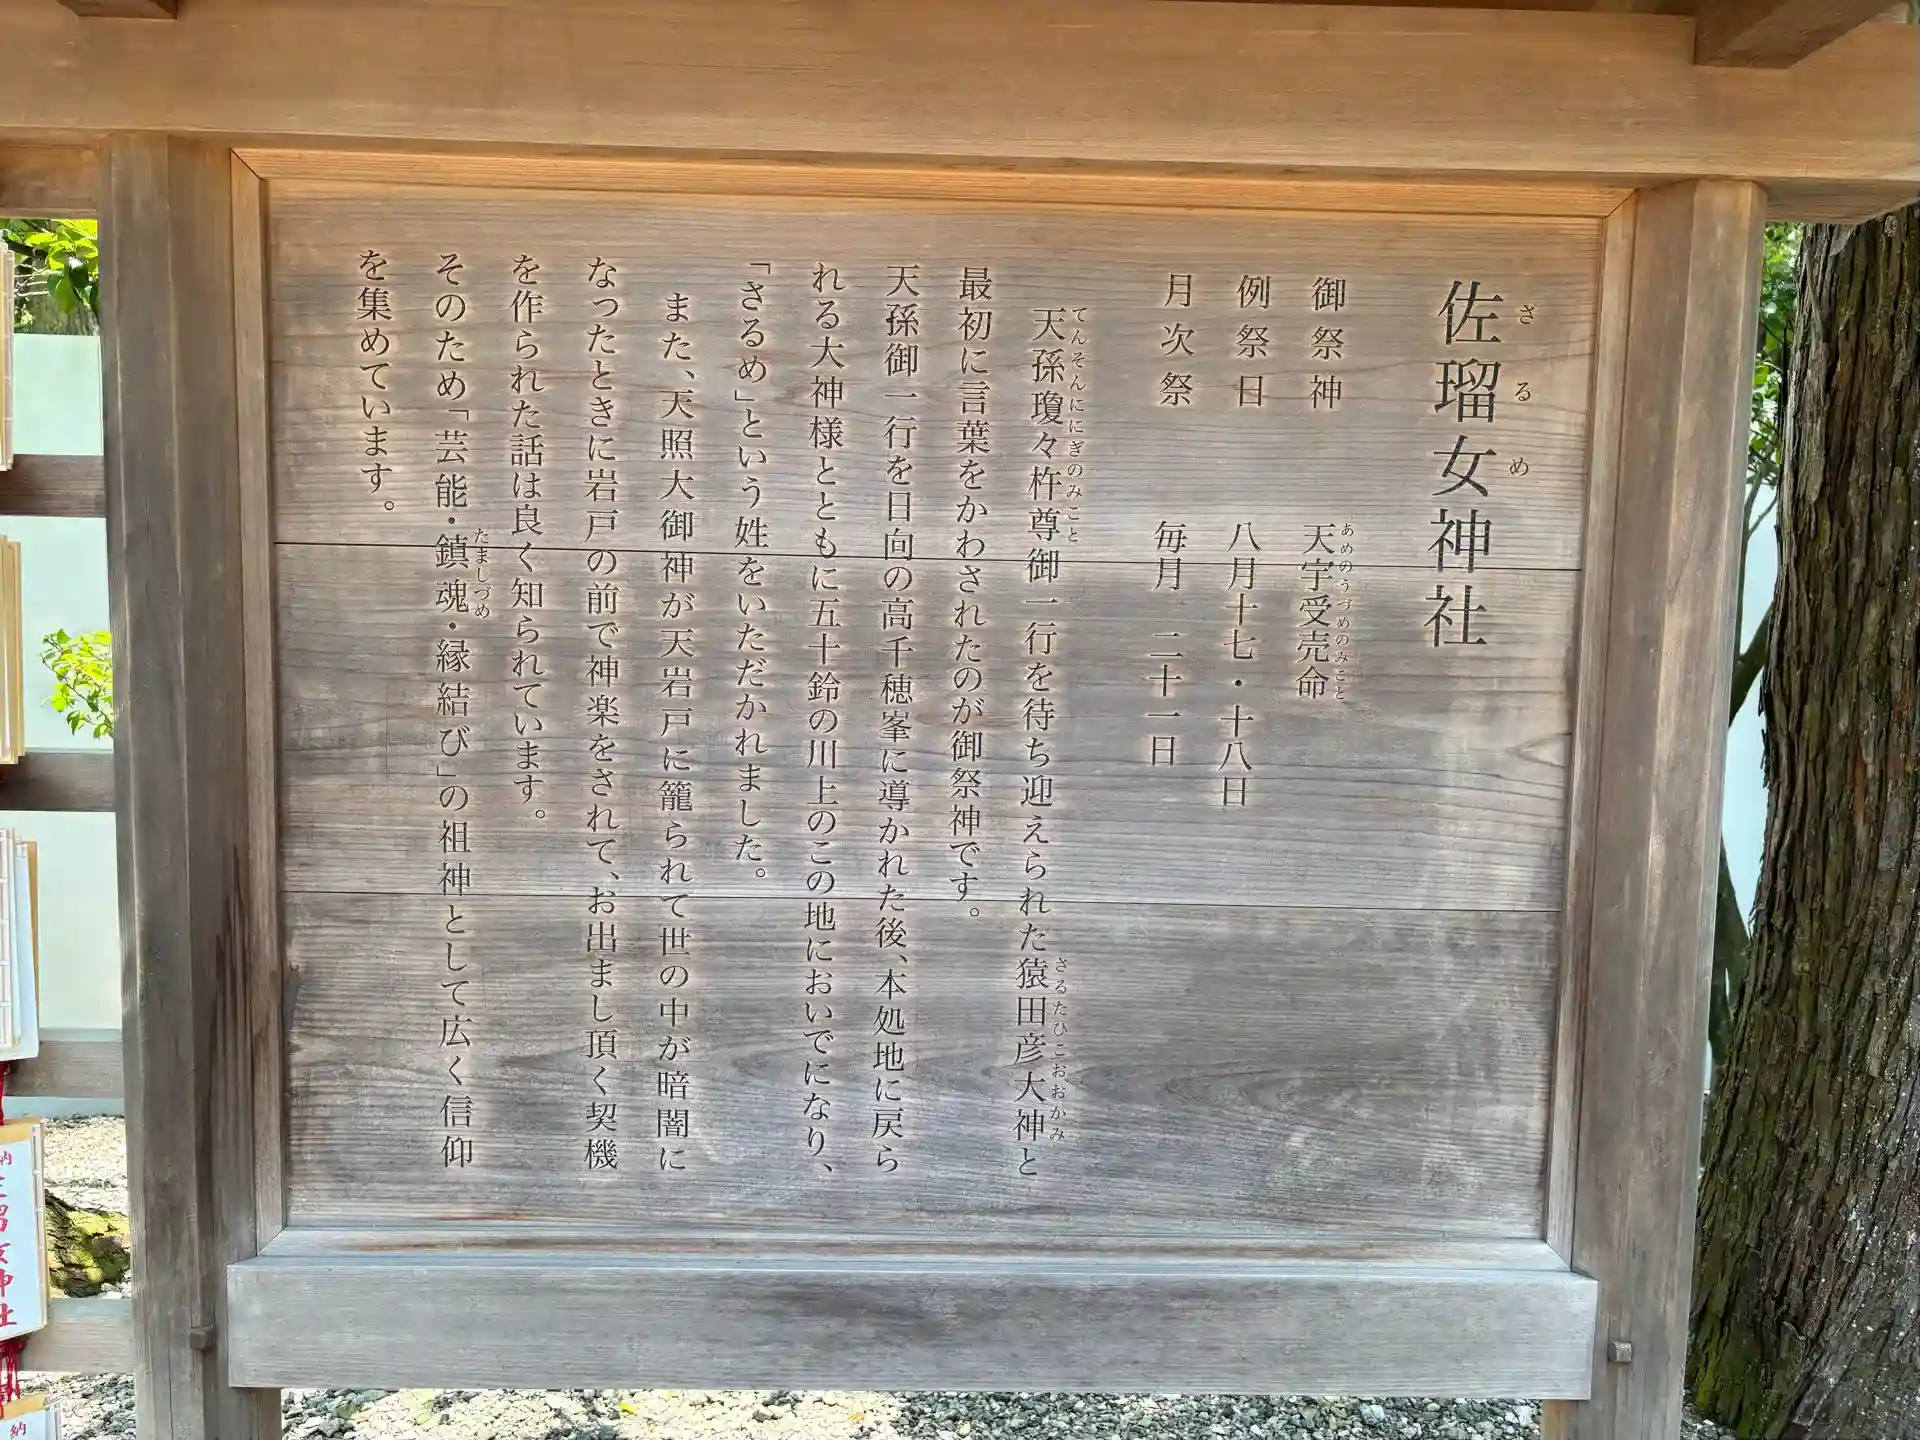 佐瑠女神社
さるめ
御祭神　天宇受売命
あめのうづめのみこと
例祭日　八月十七・十八日
月次祭　毎月　二十一日
天孫瓊々杵尊御一行を待ち迎えられた猿田彦大神と
てんそんににぎのみこと
さるたひこおおかみ
最初に言葉をかわされたのが御祭神です。
天孫御一行を日向の高千穂峯に導かれた後、本処地に戻ら
れる大神様とともに五十鈴の川上のこの地においでになり、
「さるめ」という姓をいただかれました。
また、天照大御神が天岩戸に籠られて世の中が暗闇に
なったときに岩戸の前で神楽をされて、お出まし頂く契機
を作られた話は良く知られています。
そのため「芸能・鎮魂・縁結び」の祖神として広く信仰
たましづめ
を集めています。
納
女神社
納